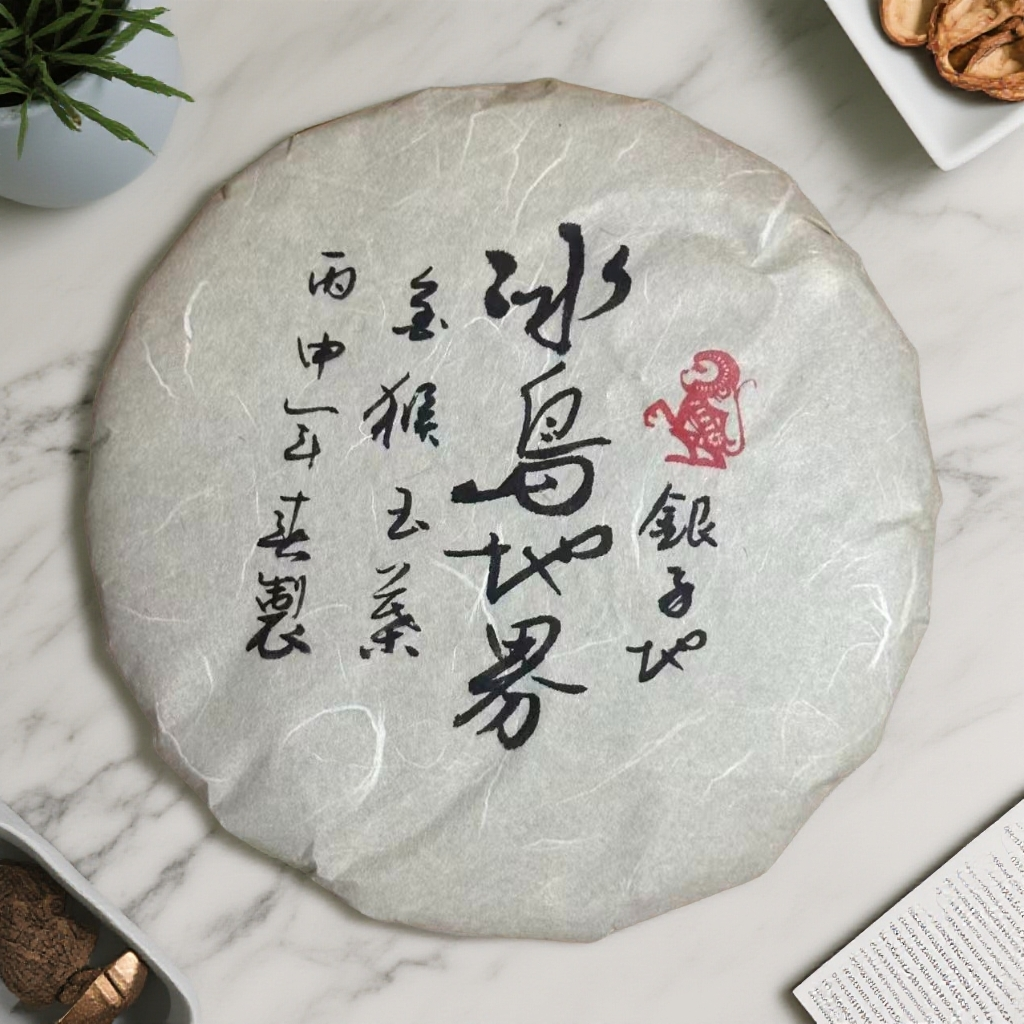 銀子地
冰島地界
金猴玉葉
丙申年春製